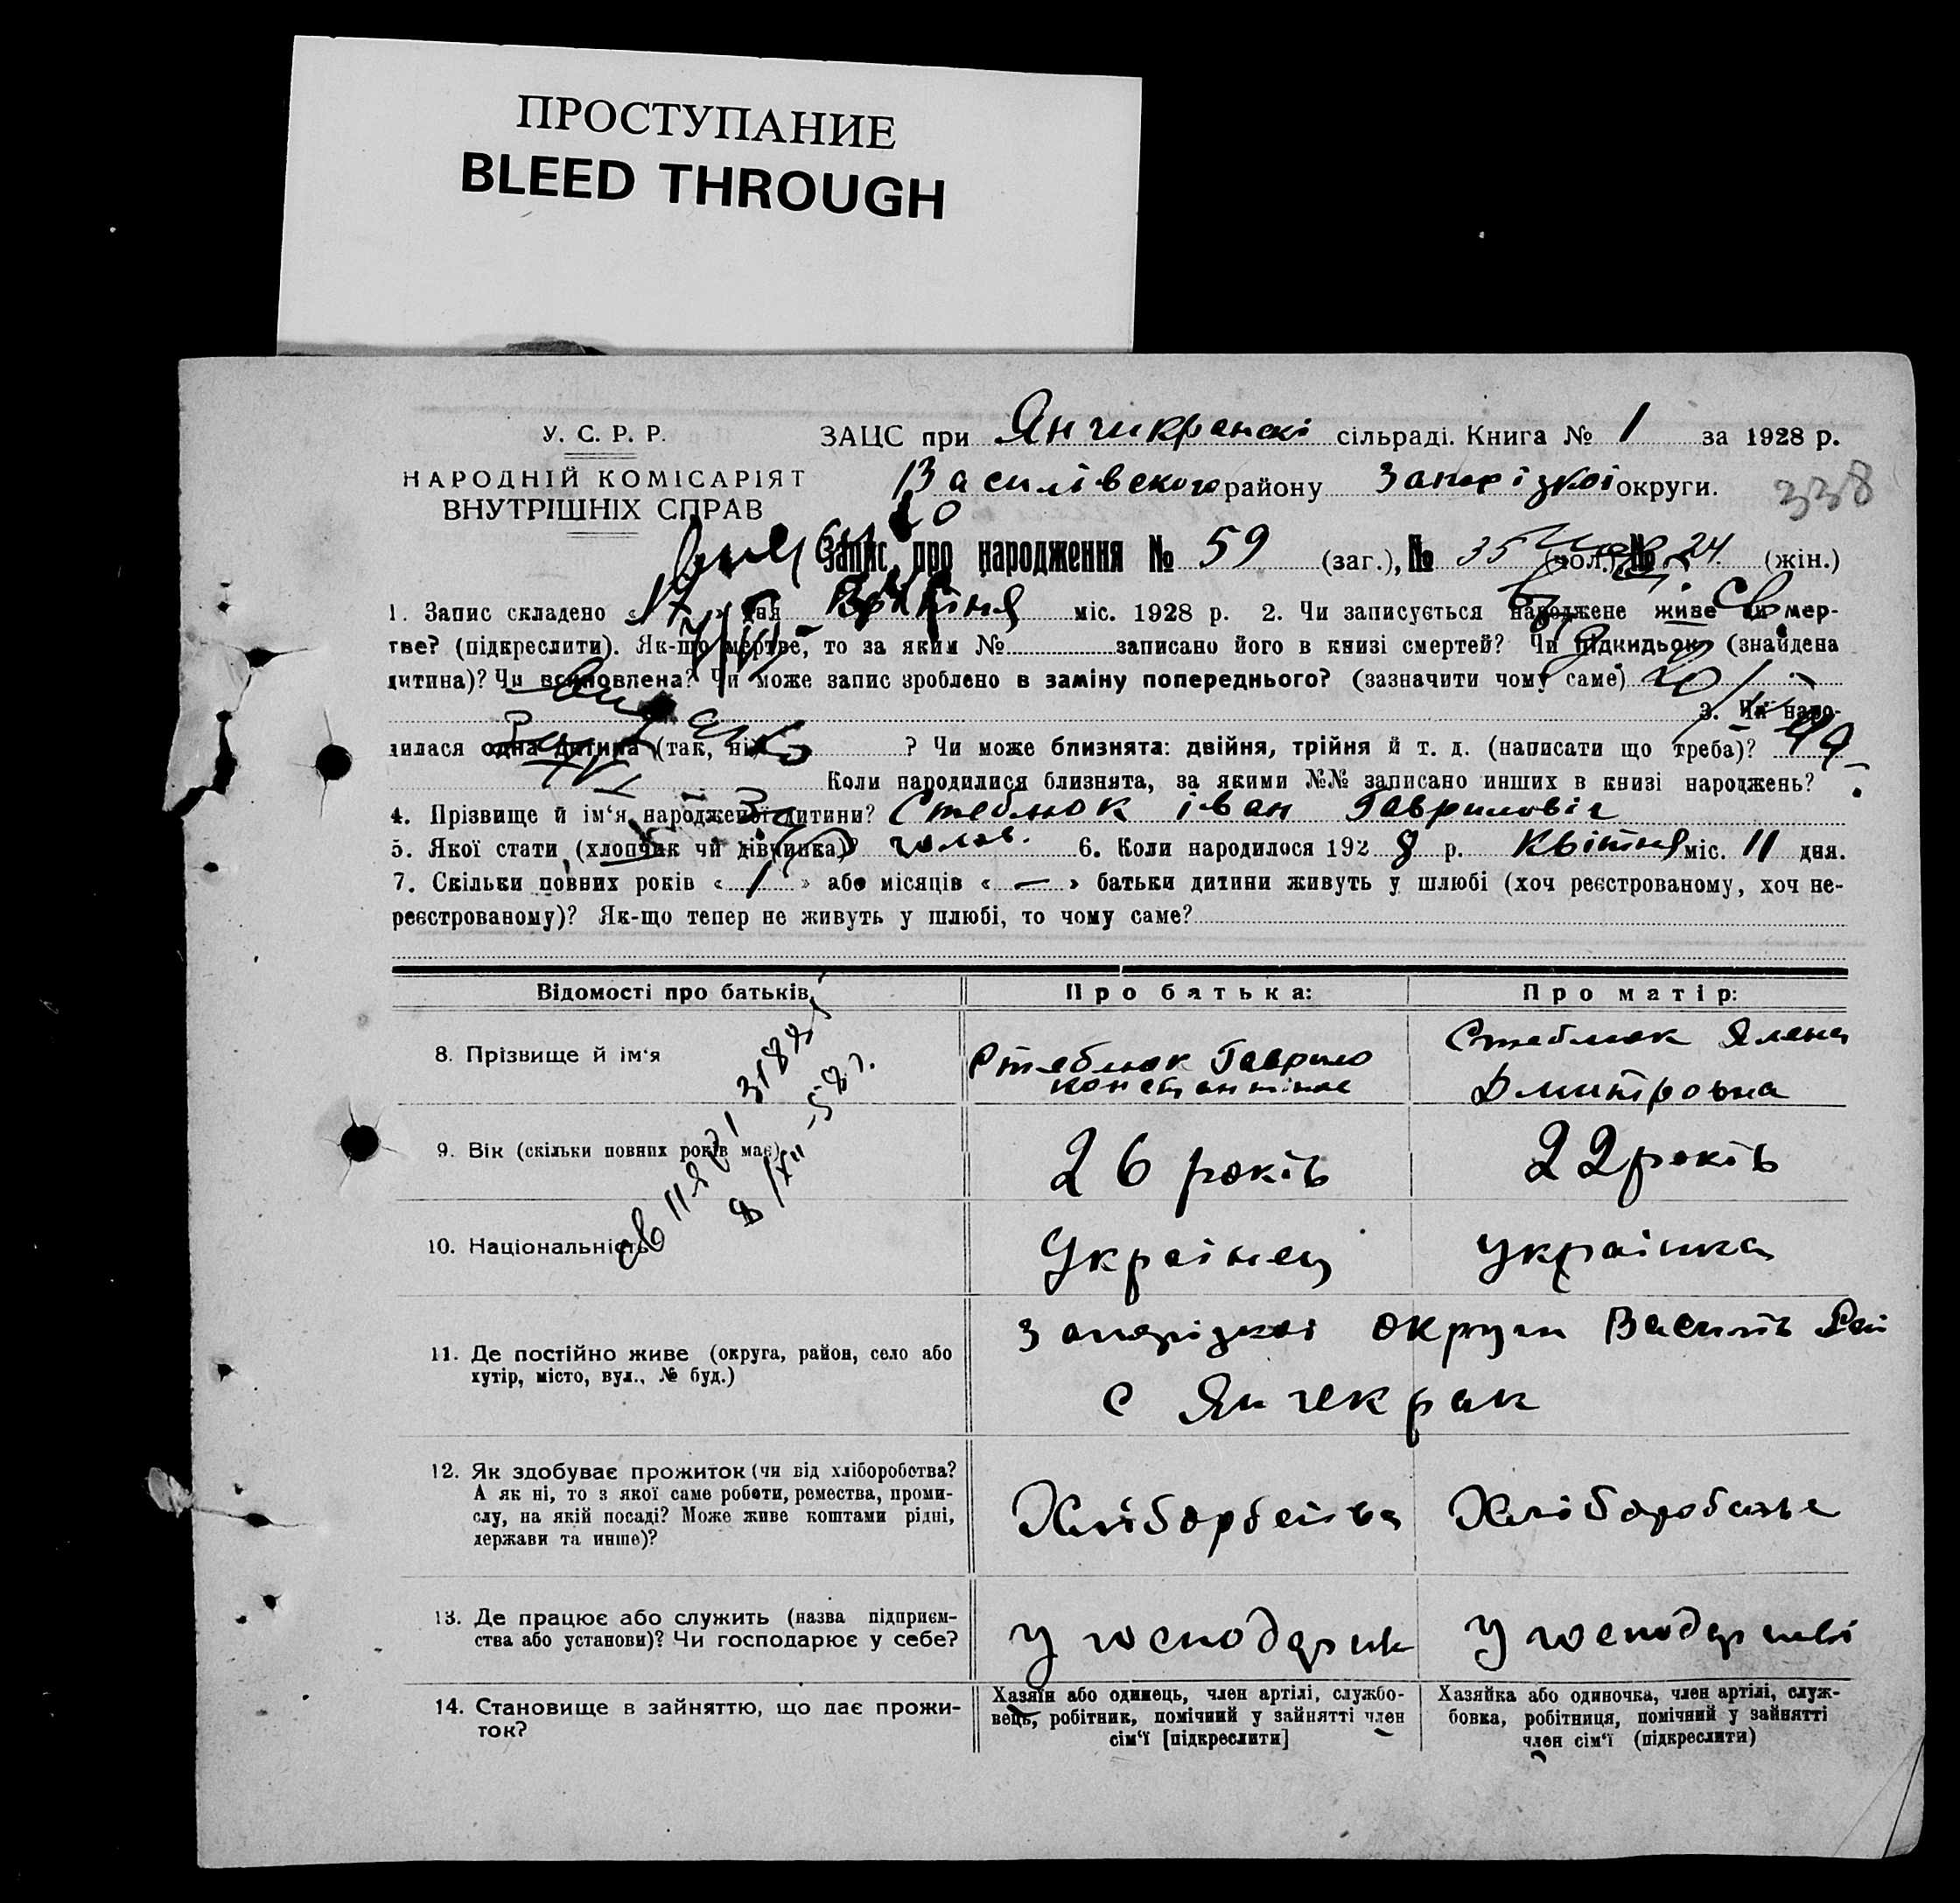 ПРОСТУПАНИЕ
BLEED THROUGH
У. С. Р. Р.
НАРОДНІЙ КОМІСАРІЯТ
ВНУТРІШНІХ СПРАВ
ЗАЦС при Янчикракскі сільраді. Книга № 1 за 1928 р.
Василівского району Запорізкоі округи.
338
Запис про народження № 59 (заг.), № 35 (чол.) № 24. (жін.)
1. Запис складено « 17 » дня Квітня міс. 1928 р. 2. Чи записується народжене живе чи мер-
тве? (підкреслити). Як-що мертве, то за яким № записано його в книзі смертей? Чи підкидьок (знайдена
дитина)? Чи всиновлена? Чи може запис зроблено в заміну попереднього? (зазначити чому саме)
3. Чи наро-
дилася одна дитина (так, ні) ? Чи може близнята: двійня, трійня й т. д. (написати що треба)?
Коли народилися близнята, за якими №№ записано инших в книзі народжень?
4. Прізвище й ім'я народженої дитини? Стеблюк іван Гаврилович
5. Якої статі (хлопчик чи дівчинка)? чолов. 6. Коли народилося 192 8 р. Квітня міс. 11 дня.
7. Скільки повних років « 1 » або місяців « — » батьки дитини живуть у шлюбі (хоч реєстрованому, хоч не-
реєстрованому)? Як-що тепер не живуть у шлюбі, то чому саме?
Відомості про батьків Про батька: Про матір:
8. Прізвище й ім'я
Стеблюк Гаврило
Стеблюк Ялена
Дмитровна
9. Вік (скільки повних років має)
26 років
22 років
10. Національність
Українец
українка
11. Де постійно живе (округа, район, село або
хутір, місто, вул., № буд.)
Запорізкоі округи Василів Рай
с Янчекрак
12. Як здобуває прожиток (чи від хліборобства?
А як ні, то з якої саме роботи, ремества, проми-
слу, на якій посаді? Може живе коштами рідні,
держави та инше)?
13. Де працює або служить (назва підприєм-
ства або установи)? Чи господарює у себе?
14. Становище в зайняттю, що дає прожи-
ток?
Хазяїн або одинець, член артілі, службо-
вець, робітник, помічний у зайнятті член
сім'ї [підкреслити]
Хазяйка або одиночка, член артілі, служ-
бовка, робітниця, помічний у зайнятті
член сім'ї (підкреслити)